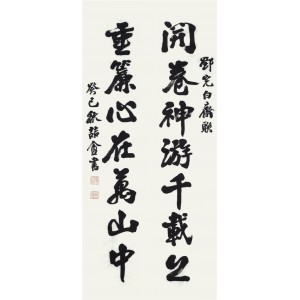 鄧完白齋聯
開卷神游千載上
垂簾心在萬山中
癸巳秋盦書